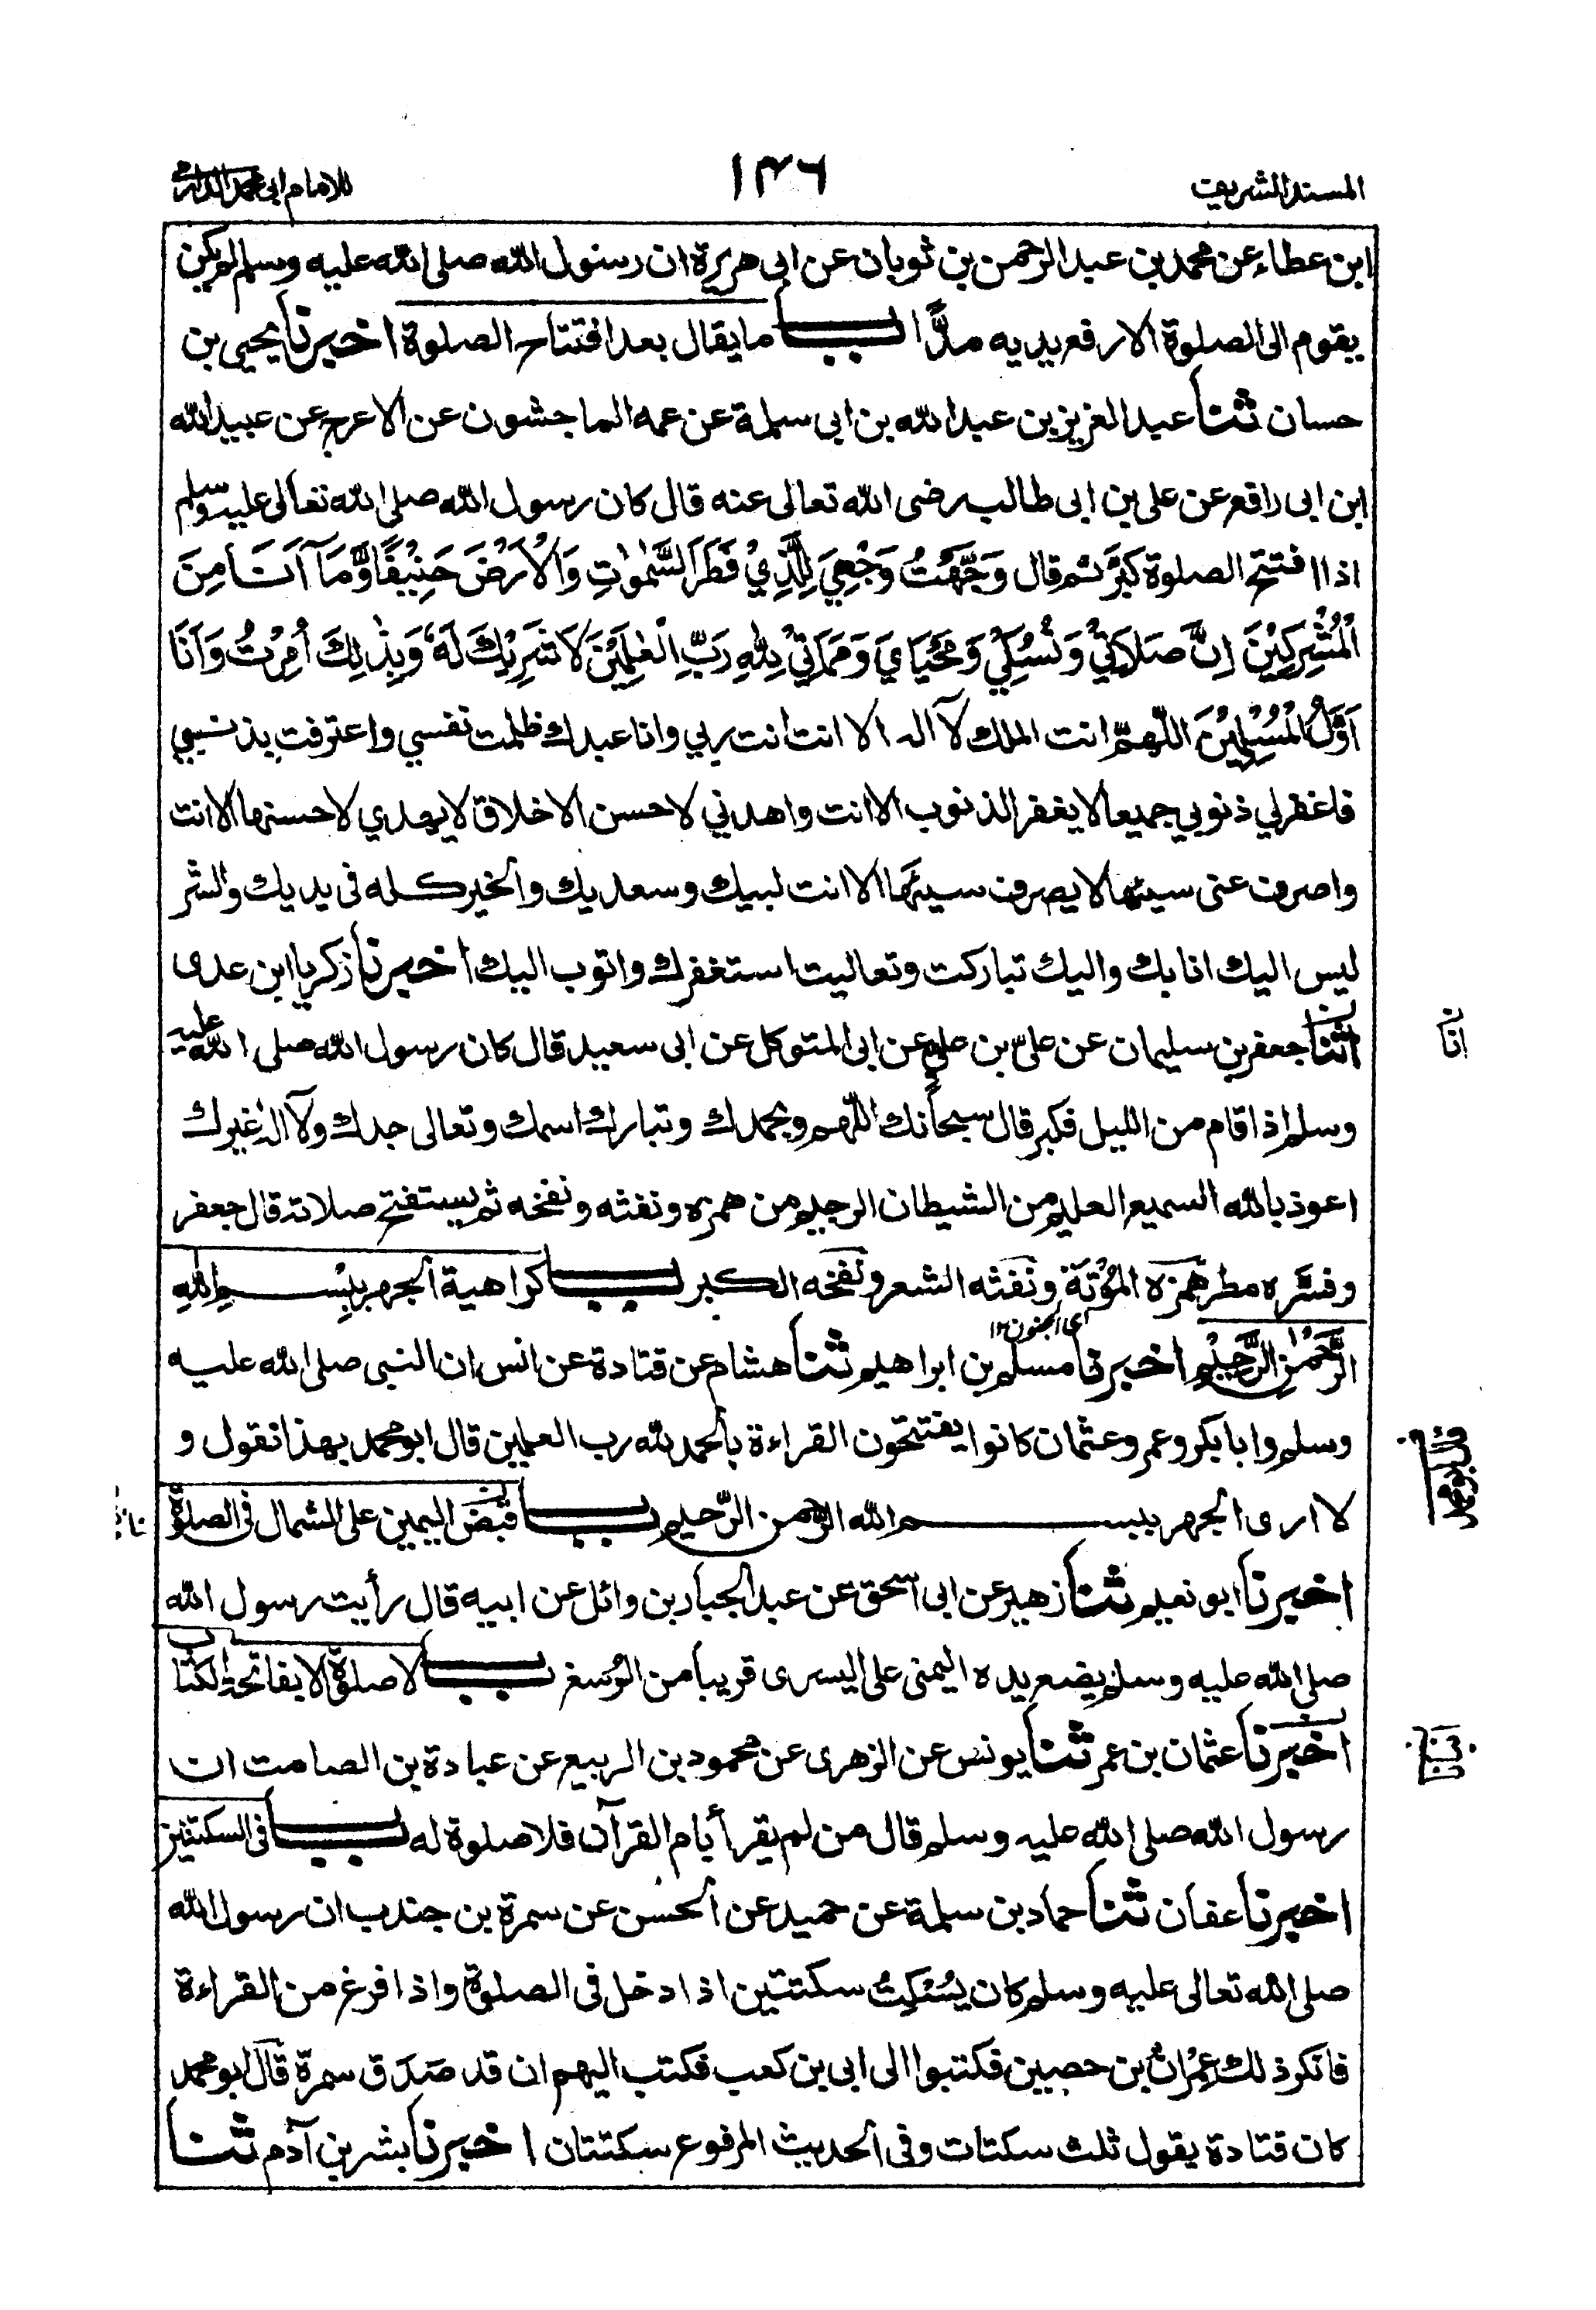 المسند الشريف
١٤٦
للامام ابى محمد الدارمى
ابن عطاء عن محمد بن عبد الرحمن بن ثوبان عن ابى هريرة ان رسول الله صلى الله عليه وسلم لم يكن
يقوم الى الصلوة الا رفع يديه مدًّا باب ما يقال بعد افتتاح الصلوة اخبرنا يحيى بن
حسان ثنا عبد العزيز بن عبد الله بن ابى سلمة عن عمه الماجشون عن الاعرج عن عبيد الله
ابن ابى رافع عن على بن ابى طالب رضى الله تعالى عنه قال كان رسول الله صلى الله تعالى عليه وسلم
اذا افتتح الصلوة كبَّر ثم قال وَجَّهْتُ وَجْهِيَ لِلَّذِيْ فَطَرَ السَّمٰوٰتِ وَالْاَرْضَ حَنِيْفًا وَّمَآ اَنَا مِنَ
الْمُشْرِكِيْنَ اِنَّ صَلَاتِيْ وَنُسُكِيْ وَمَحْيَايَ وَمَمَاتِيْ لِلّٰهِ رَبِّ الْعٰلَمِيْنَ لَا شَرِيْكَ لَهٗ وَبِذٰلِكَ اُمِرْتُ وَاَنَا
اَوَّلُ الْمُسْلِمِيْنَ اللّٰهمّ انت الملك لآ اله الا انت انت ربي وانا عبدك ظلمت نفسي واعترفت بذنبي
فاغفرلي ذنوبي جميعا لا يغفر الذنوب الا انت واهدني لاحسن الاخلاق لا يهدي لاحسنها الا انت
واصرف عنى سيئها لا يصرف سيئها الا انت لبيك وسعديك والخير كله فى يديك والشر
ليس اليك انا بك واليك تباركت وتعاليت استغفرك واتوب اليك اخبرنا زكريا ابن عدى
اثنا جعفر بن سليمان عن علىّ بن على عن ابى المتوكل عن ابى سعيد قال كان رسول الله صلى الله عليه
وسلم اذا قام من الليل فكبر قال سبحانك اللّٰهم وبحمدك وتبارك اسمك وتعالى جدك ولآ اله غيرك
اعوذ بالله السميع العليم من الشيطان الرجيم من همزه ونفثه ونفخه ثم يستفتح صلاته قال جعفر
وفسَّره مطر هَمْزه المُؤْتَة ونَفْثه الشعر ونَفْخه الكبر باب كراهية الجهر ببِسْمِ اللهِ
اى الجنون ١٢
الرَّحْمٰنِ الرَّحِيْمِ اخبرنا مسلم بن ابراهيم ثنا هشام عن قتادة عن انس ان النبى صلى الله عليه
وسلم وابا بكر وعمر وعثمان كانوا يفتتحون القراءة بالحمد لله رب العلمين قال ابو محمد بهذا نقول و
لا ارى الجهر ببسم الله الرحمن الرّحيم باب قبض اليمين على الشمال فى الصلوة
اخبرنا ابو نعيم ثنا زهير عن ابى اسحق عن عبد الجبار بن وائل عن ابيه قال رأيت رسول الله
صلى الله عليه وسلم يضع يده اليمنى على اليسرى قريبا من الرُسغ باب لا صلوة الا بفاتحة الكتاب
اخبرنا عثمان بن عمر ثنا يونس عن الزهرى عن محمود بن الربيع عن عبادة بن الصامت ان
رسول الله صلى الله عليه وسلم قال من لم يقرأ بام القرآن فلا صلوة له باب فى السكتتين
اخبرنا عفان ثنا حماد بن سلمة عن حميد عن الحسن عن سمرة بن جندب ان رسول الله
صلى الله تعالى عليه وسلم كان يُسْكِتُ سكتتين اذا دخل فى الصلوة واذا فرغ من القراءة
فانكر ذلك عِمْرانُ بن حصين فكتبوا الى ابى بن كعب فكتب اليهم ان قد صَدَق سمرة قال ابو محمد
كان قتادة يقول ثلث سكتات وفى الحديث المرفوع سكتتان اخبرنا بشر بن آدم ثنا
انا